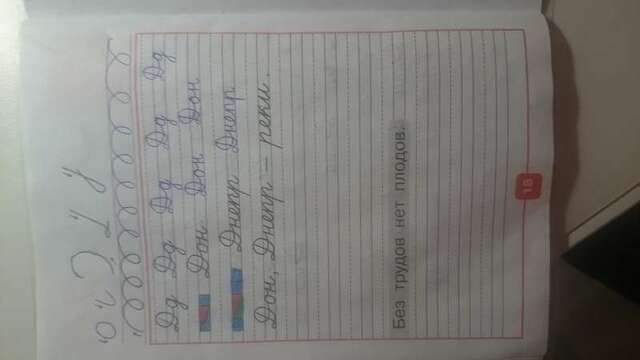 Дд Дд Дд Дд Дд
Дон Дон Дон
Днепр Днепр
Дон, Днепр – реки.
Без трудов нет плодов.
18